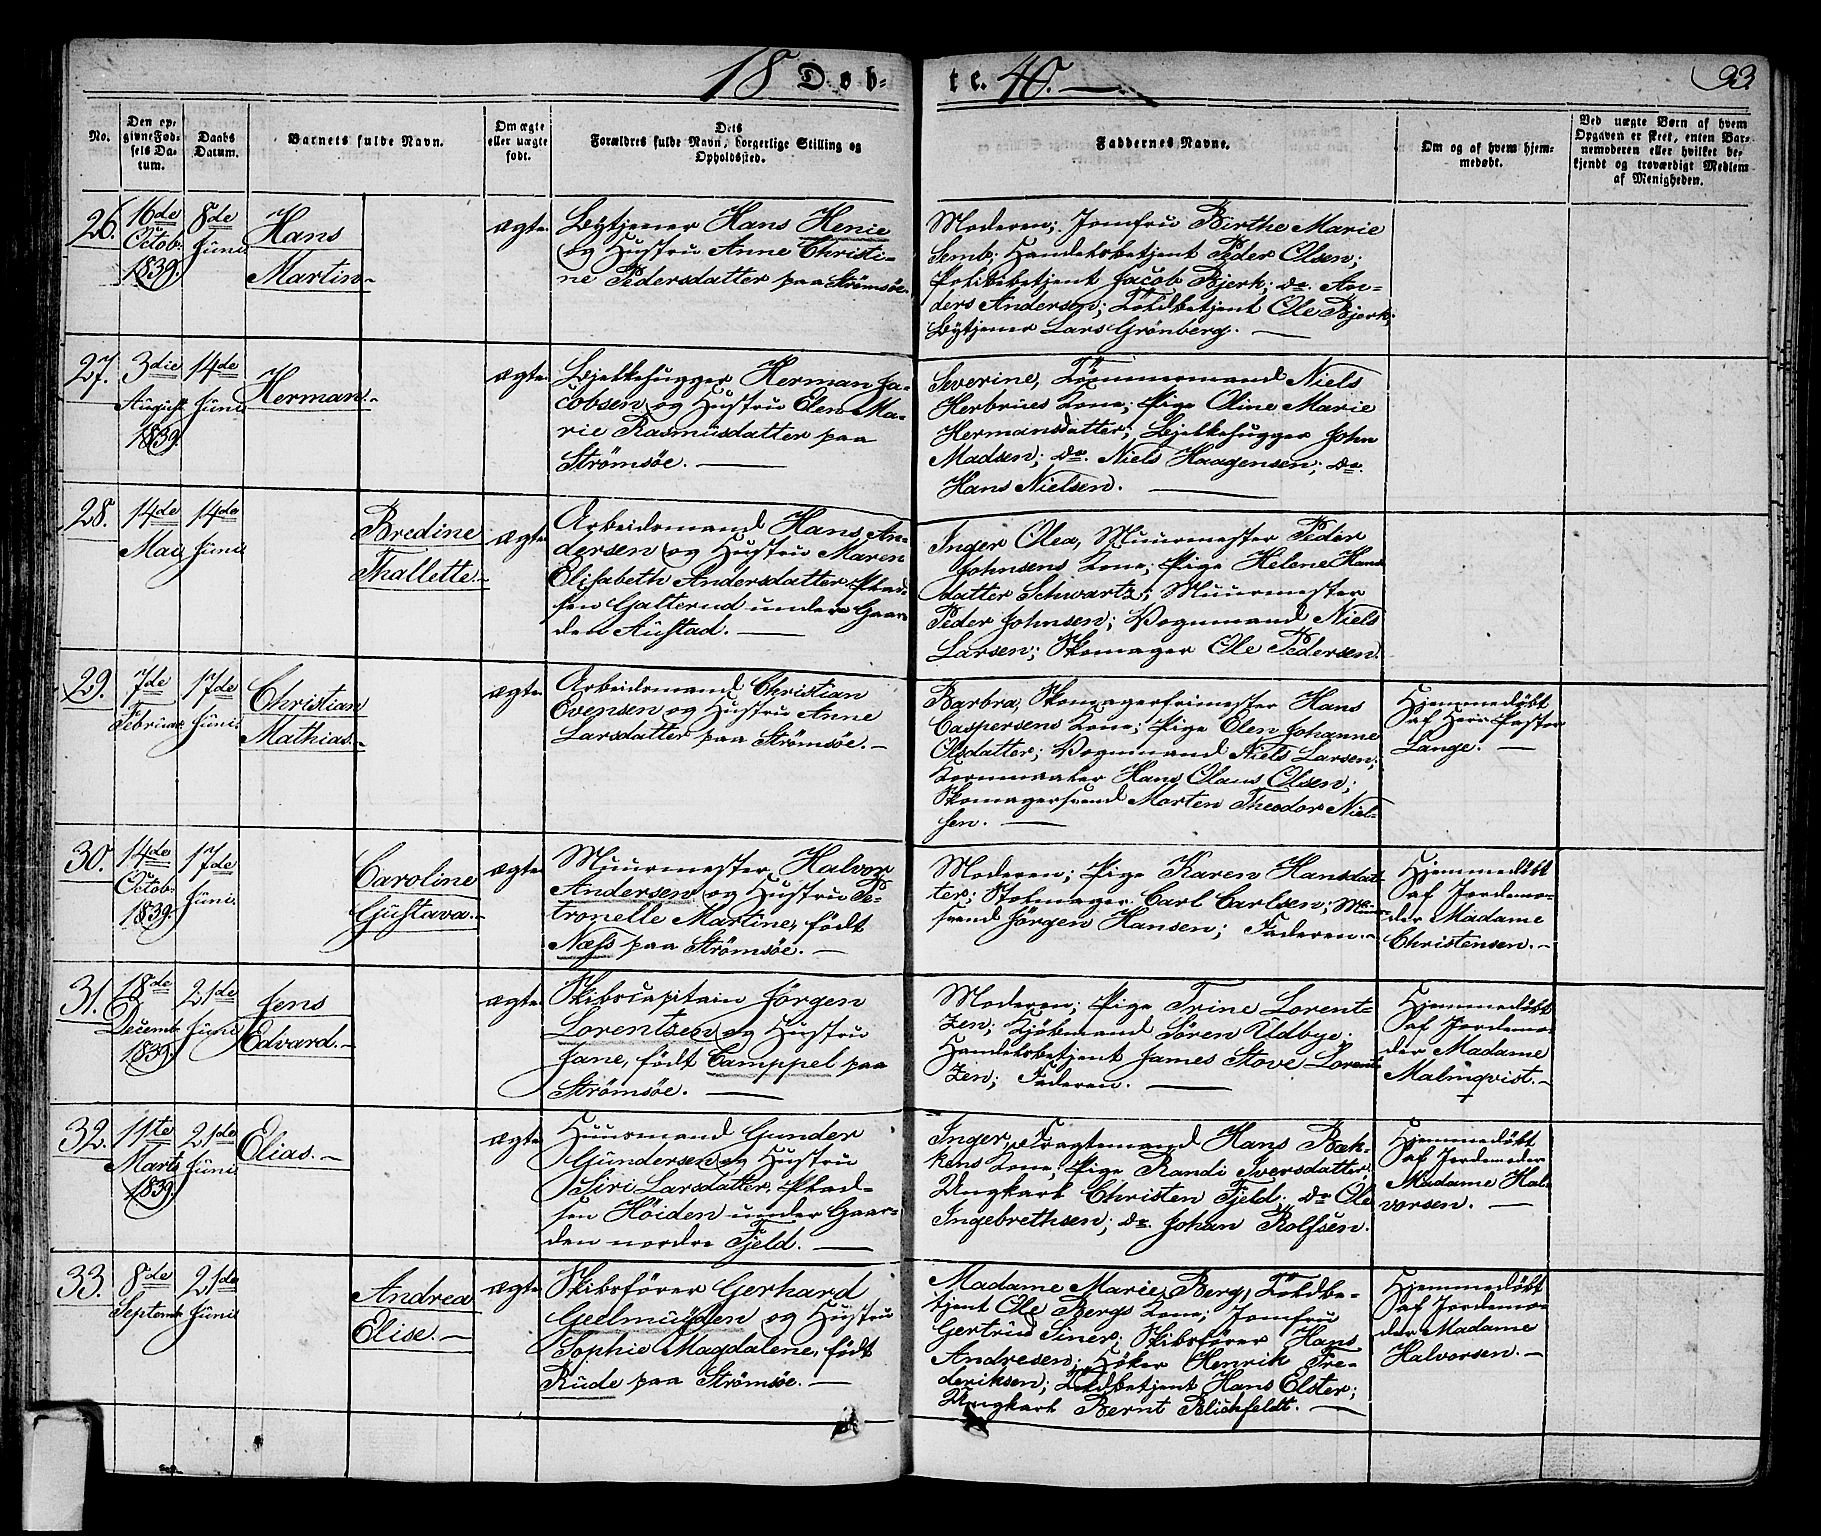 18 Döb-
te. 40.
93.
No.
Den op-
givne Föd-
sels Da-
tum.
Daabs
Datum.
Barnets fulde Navn.
Om ægte
eller uægte
født.
Dets
Forældres fulde Navn, borgerlige Stilling og
Opholdssted.
Faddernes Navne.
Om og af hvem hjem-
medøbt.
Ved uægte Børn af hvem
Opgaven er skeet, enten Bar-
nemoderen eller hvilket be-
kjendt og troværdigt Medlem
af Menigheden.
26.
16de
Octob.
1839.
8de
Juni
Hans
Martin.-
ægte
Bytjener Hans Henie
og Hustru Anne Christi-
ne Pedersdatter paa Strömsöe.
Moderen; Jomfru Birthe Marie
Semb; Handelsbetjent Peder Olsen;
Politibetjent Jacob Bjerk; do. An-
ders Andersen; Toldbetjent Ole Bjerk;
Bytjener Lars Grönberg.
27.
3die
August
1839
14de
Juni
Herman.-
ægte
Bjelkehugger Herman Ja-
cobsen og Hustru Elen Ma-
rie Rasmusdatter paa
Strömsöe.
Severine, Tömmermand Niels
Herbrues Kone; Pige Oline Marie
Hermansdatter; Bjelkehugger John
Madsen; do. Niels Haagensen; do.
Hans Nielsen.
28.
14de
Mai
14de
Juni
Bredine
Thallette.-
ægte
Arbeidsmand Hans An-
dersen og Hustru Maren
Elisabeth Andersdatter Plad-
sen Galterud under Gaar-
den Austad.
Inger Olea, Muurmester Peder
Johnsens Kone; Pige Helene Hans
datter Schwartz; Muurmester
Peder Johnsen; Vognmand Niels
Larsen; Skomager Ole Pedersen.
29.
7de
Februar
17de
Juni
Christian
Mathias.-
ægte
Arbeidsmand Christian
Evensen og Hustru Anne
Larsdatter paa Strömsöe.-
Barbra, Skomagerfrimester Hans
Caspersens Kone; Pige Elen Johanne
Olsdatter; Vognmand Niels Larsen;
Kornmaaler Hans Olaus Olsen;
Skomagersvend Morten Theodor Niel-
sen.
Hjemmedöbt
af Herr Pastor
Lange.
30.
14de
Octob.
1839.
17de
Juni.
Caroline
Gustava.-
ægte
Muurmester Halvor
Andersen og Hustru Pe-
tronelle Martine, födt
Næss paa Strömsöe.-
Moderen; Pige Karen Hansdat-
ter; Stolmager Carl Carlsen; Muur-
svend Jörgen Hansen; Faderen.-
Hjemmedöbt
af Jordemo-
der Madame
Christensen.-
31.
18de
Decemb.
1839.
21de
Juni
Jens
Edvard.-
ægte
Skibscapitain Jörgen
Lorentzen og Hustru
Jane, födt Camppel paa
Strömsöe.
Moderen; Pige Trine Lorent-
zen; Kjöbmand Sören Udbye;
Handelsbetjent James Stove Lorent-
zen; Faderen.
Hjemmedöbt
af Jordemo-
der Madame
Malmqvist.-
32.
11te
Marts
1839.
21de
Juni
Elias.-
ægte
Huusmand Gunder
Gundersen og Hustru
Siri Larsdatter, Plad-
sen Höiden under Gaar-
den nordre Fjeld.
Inger, Fragtemand Hans Bæk-
kens Kone; Pige Randi Iversdatter;
Ungkarl Christen Fjeld. do Ole
Ingebrethsen; do. Johan Rolfsen.
Hjemmedöbt
af Jordemoder
Madame Hal-
vorsen.
33.
8de
Septemb.
21de
Juni
Andrea
Elise.-
ægte
Skibsförer Gerhard
Geelmuyden og Hustru
Sophie Magdalene, födt
Rude paa Strömsöe.-
Madame Marie Berg, Toldbe-
tjent Ole Bergs Kone; Jomfru
Gertrud Siner; Skibsförer Hans
Andresen; Höker Henrik Fre-
deriksen; Toldbetjent Hans Elster;
Ungkarl Bernt Blichfeldt.
Hjemmedöbt
af Jordemo-
der Madame
Halvorsen.-